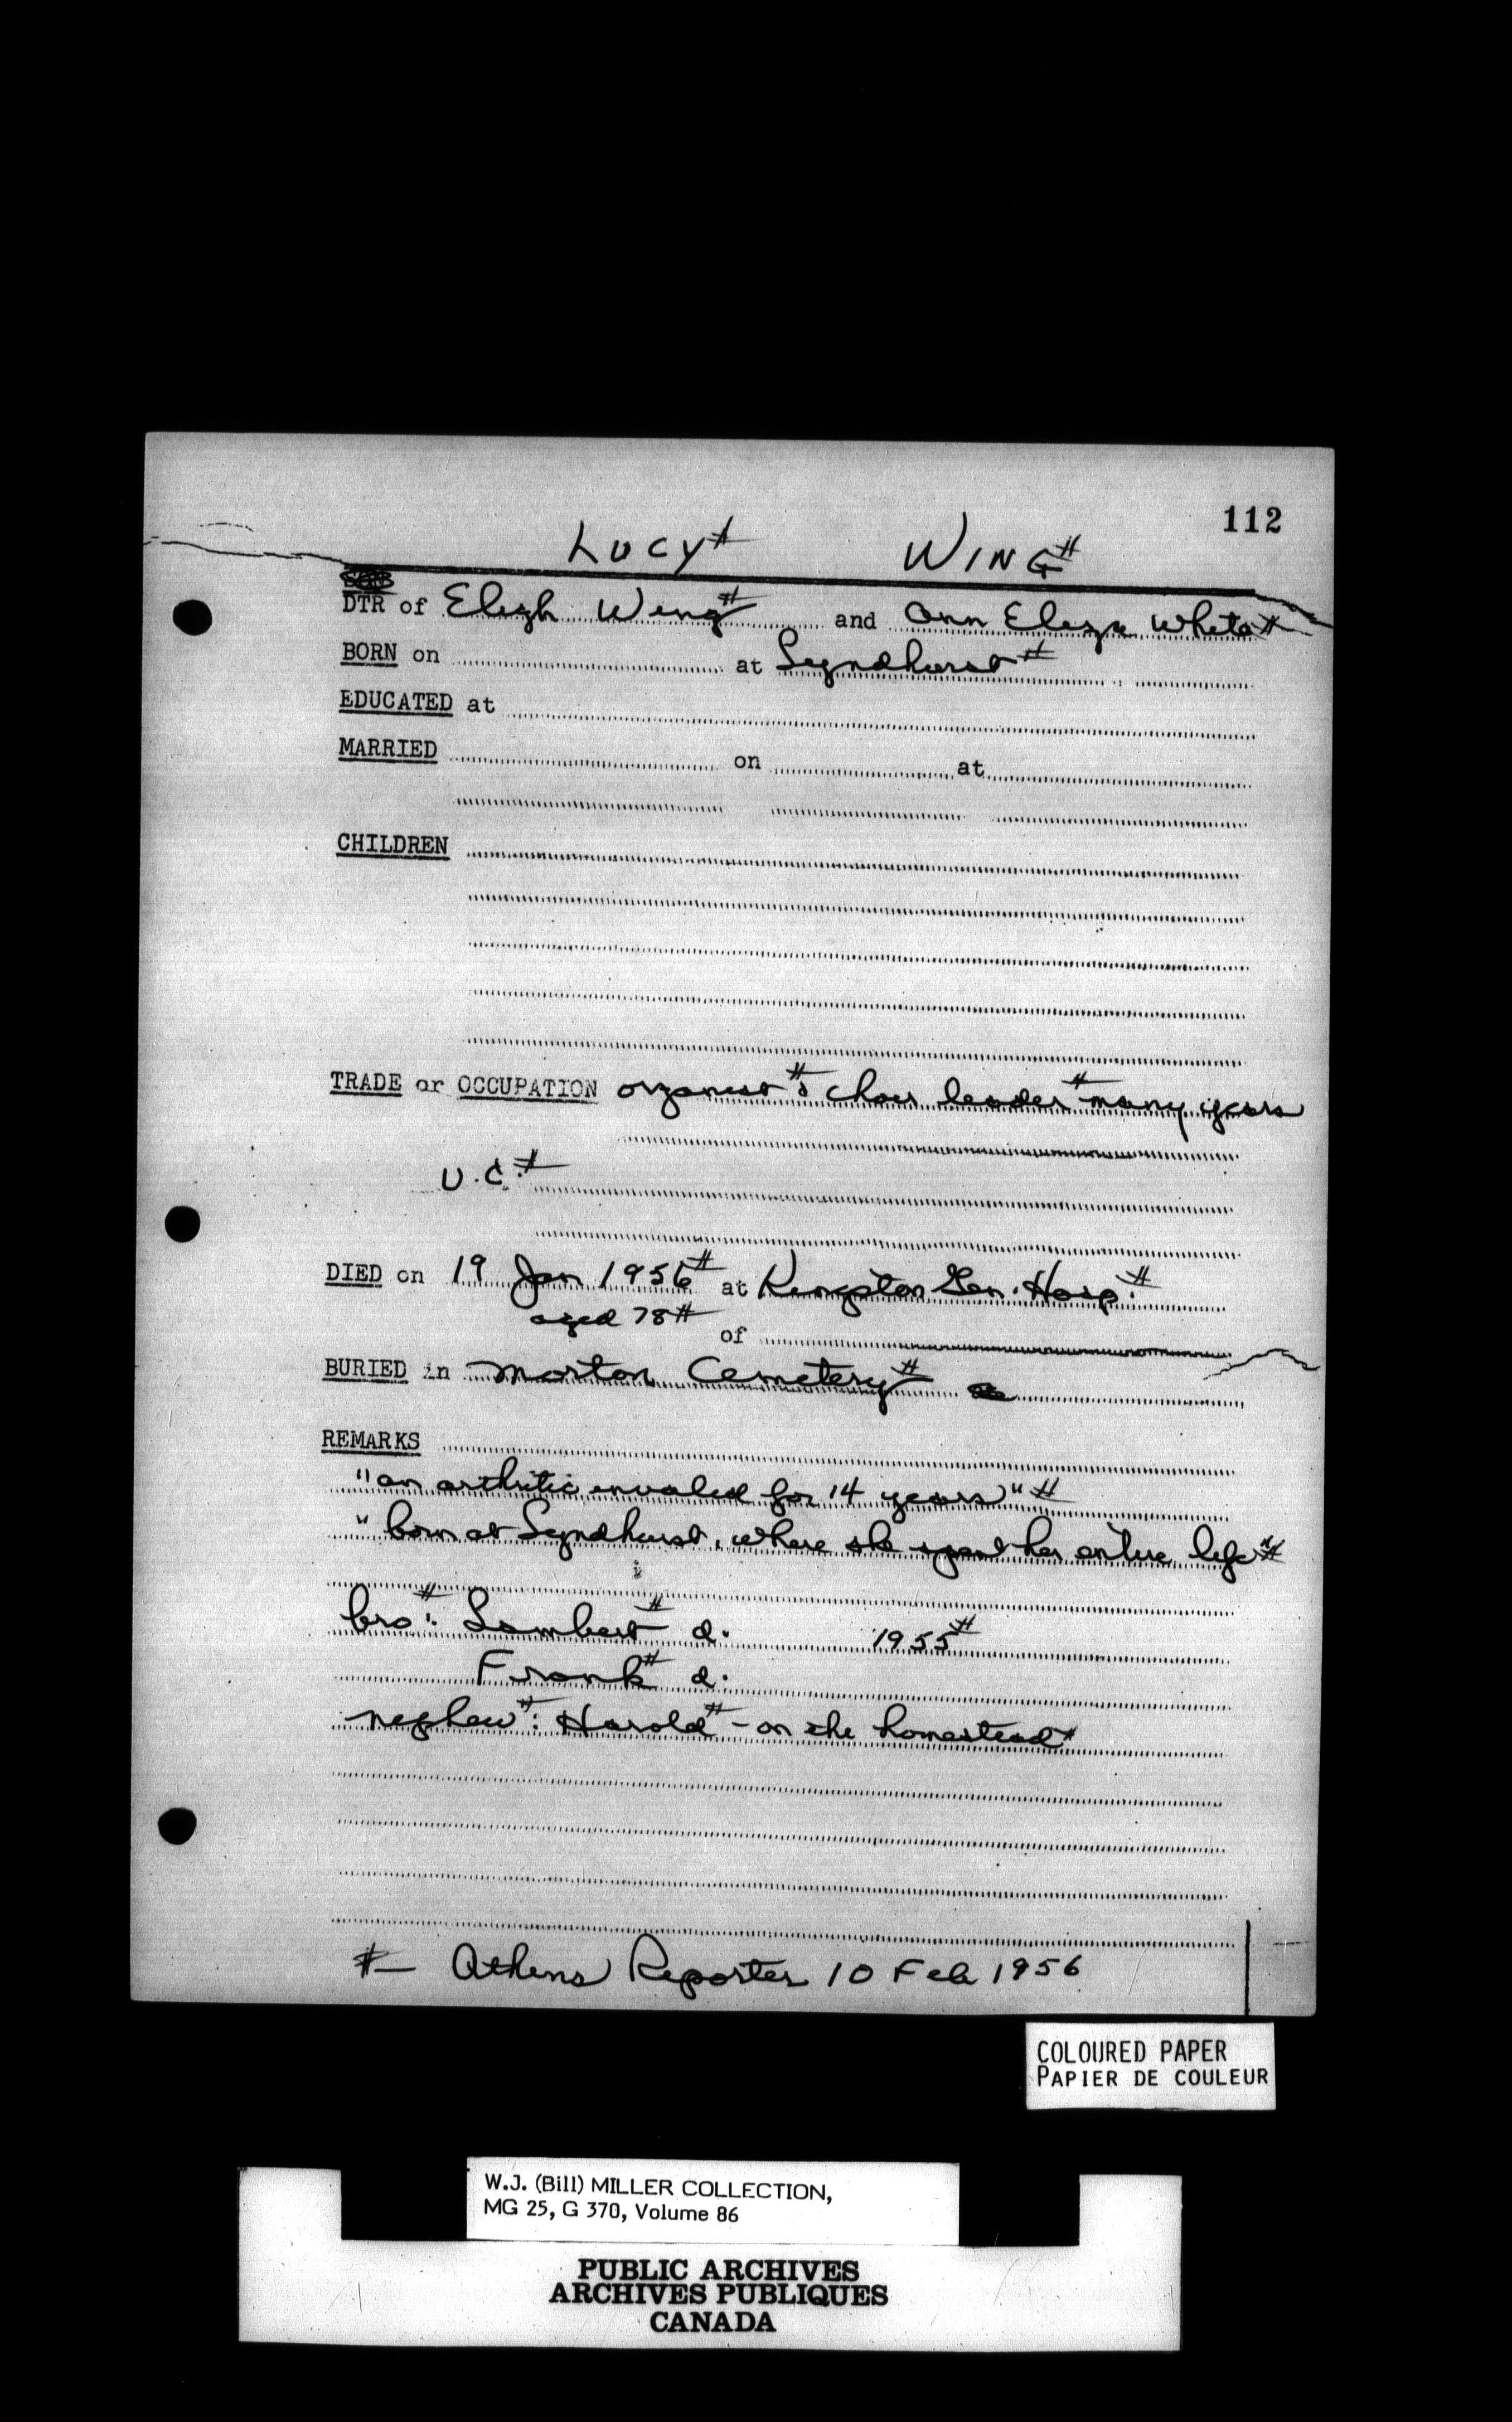 112
LUCY# WING#
SON
DTR of Elijah Wing# and Ann Eliza White#
BORN on at Lyndhurst#
EDUCATED at
MARRIED on at
CHILDREN
TRADE or OCCUPATION organist# & choir leader# many years
U.C.#
DIED on 19 Jan 1956# at Kingston Gen. Hosp.#
aged 78# of
BURIED in Morton Cemetery#
REMARKS
"an arthritic invalid for 14 years"#
"born at Lyndhurst, where she spent her entire life"#
bro#: Lambert# d. 1955#
Frank# d.
nephew#: Harold# - on the homestead#
#- Athens Reporter 10 Feb 1956
COLOURED PAPER
PAPIER DE COULEUR
W.J. (Bill) MILLER COLLECTION,
MG 25, G 370, Volume 86
PUBLIC ARCHIVES
ARCHIVES PUBLIQUES
CANADA